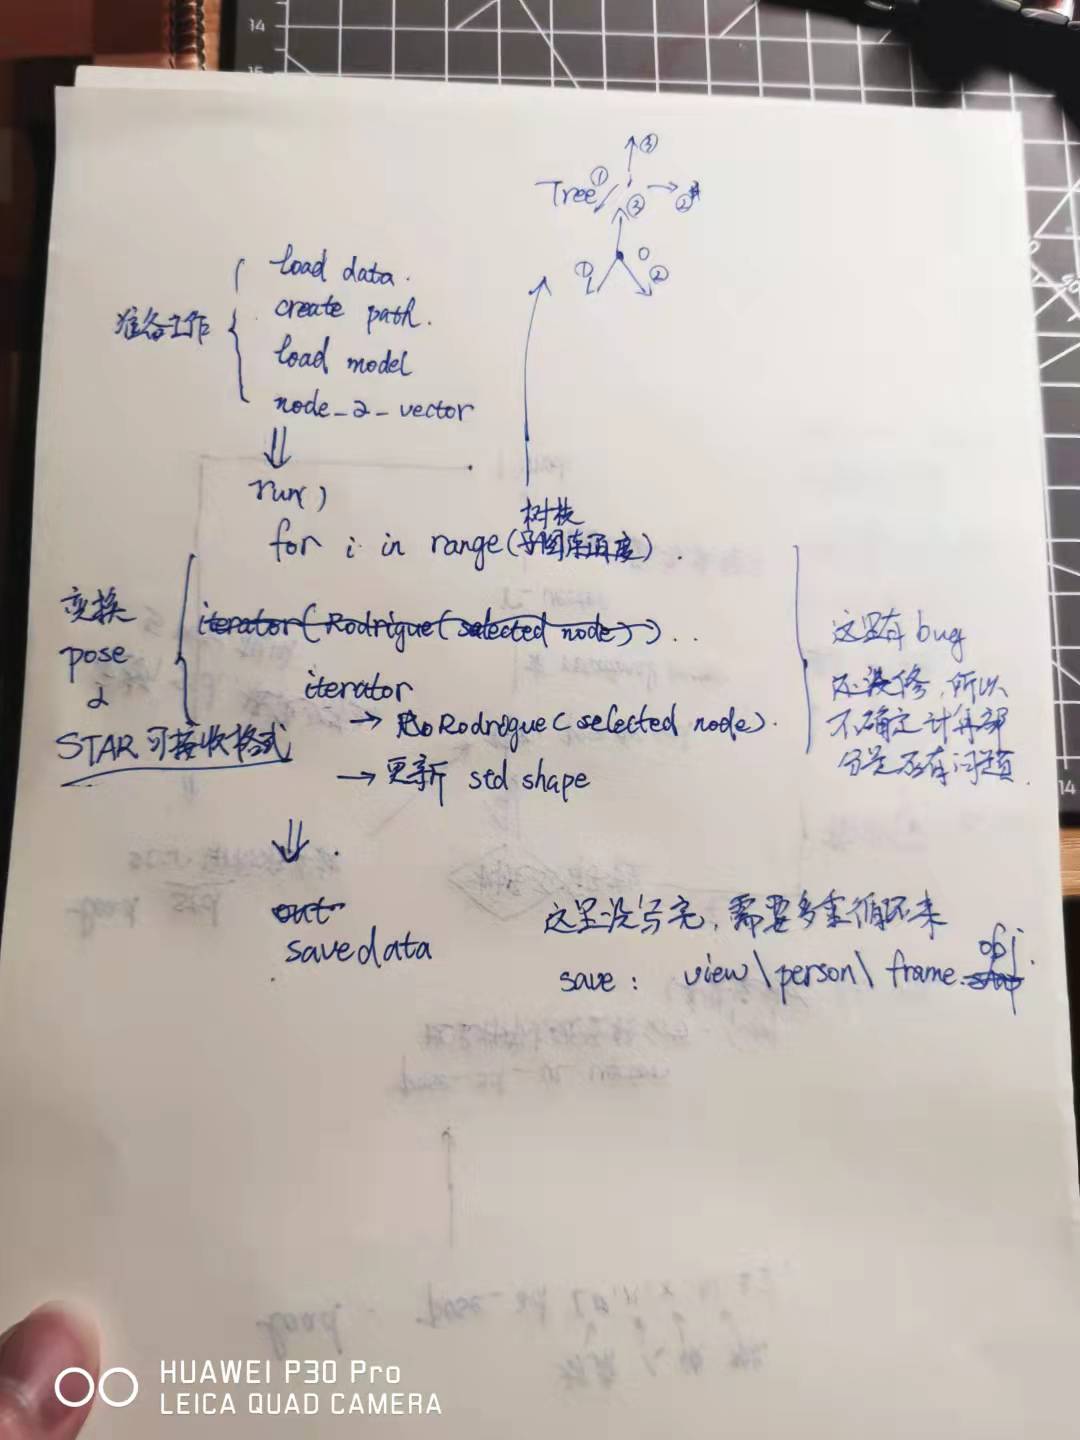 14
③
Tree ① ③ → ②
① 0 ②
准备工作
load data.
create path.
load model
node_2_vector
run()
树枝
for i in range(子图库百度).
变换
pose
2
STAR 可接收格式
iterator(Rodrigue(selected node))..
iterator
→ Rodrigue(selected node).
→ 更新 std shape
这里有 bug
还没修,所以
不确定计算部
分是否有问题.
14
out
save data
这里没写完,需要多重循环来
save: view\person\frame.obj.
HUAWEI P30 Pro
LEICA QUAD CAMERA